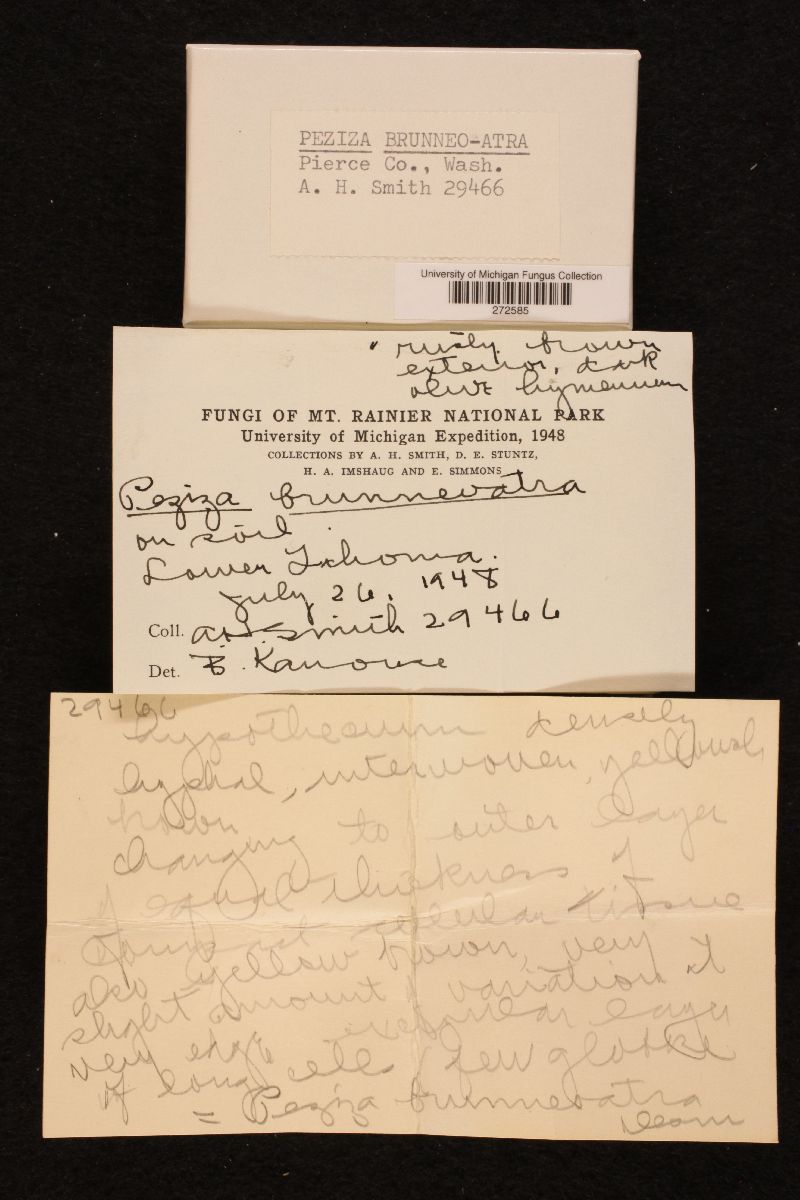 PEZIZA BRUNNEO-ATRA
Pierce Co., Wash.
A. H. Smith 29466
University of Michigan Fungus Collection
272585
rusty brown
exterior, dark
olive hymenium
FUNGI OF MT. RAINIER NATIONAL PARK
University of Michigan Expedition, 1948
COLLECTIONS BY A. H. SMITH, D. E. STUNTZ,
H. A. IMSHAUG AND E. SIMMONS
Peziza brunneoatra
on soil
Lower Ixhoma.
July 26, 1948
Coll. AH Smith 29466
Det. B. Kanouse
29466
hypothecium densely
hyphal, interwoven, yellowish
brown
changing to outer layer
of equal thickness of
compact cellular tissue
also yellow brown, very
slight amount of variation at
very edge irregular layer
of long cells, few globose
= Peziza brunneoatra
Desm